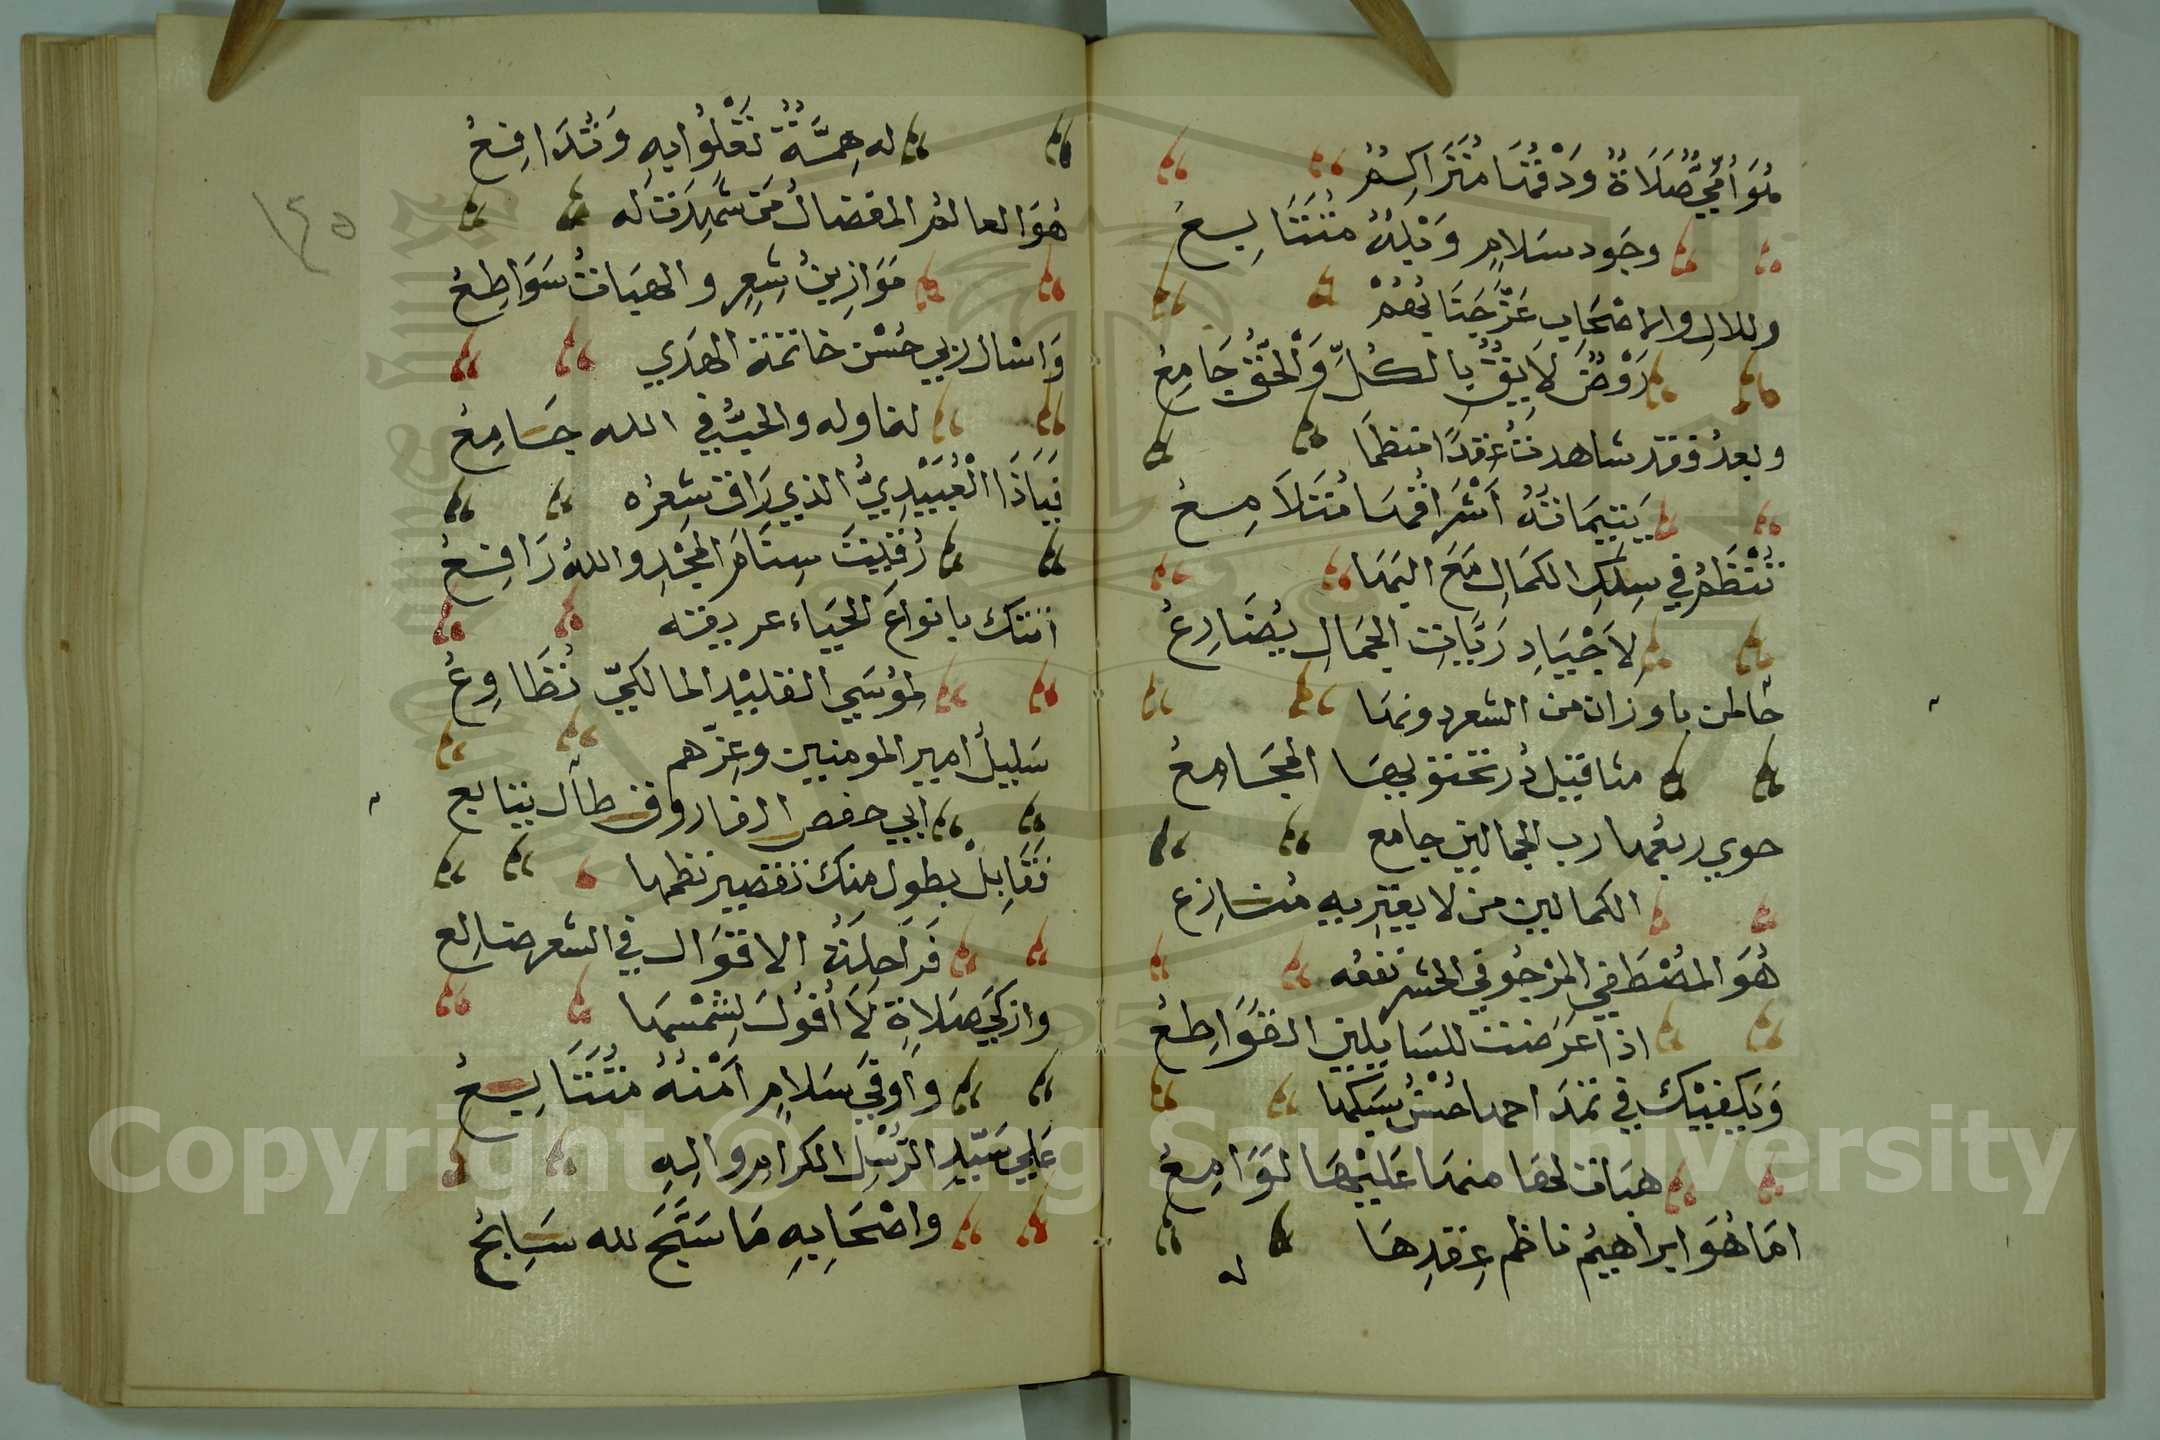 صَلَاةٌ وَدْقُهَا مُتَرَاكِمُ
وجَود سَلامٍ وَبْلُهُ مُتَتَابِعُ
وللالِ والاصْحَابِ عَزَّ جَنَابُهُمْ
رَوْضٌ لَايِقٌ بِالكُلِّ وَالْحَقُّ جَامِعُ
وبعدُ فقد شاهدتُ عِقدًا منظمًا
يَتِيمَاتُهُ اَشْرَاقُهَا مُتَلَامِعُ
تُنَظَّمُ في سِلْكِ الكمَالِ مَعَ البَهَا
لِاَجْيَادِ رَبَّاتِ الجمَالِ يُضَارِعُ
باوزان من الشعر دونها
مثاقيل دُر تحتفي بهَا المجَامِعُ
حوى ربعُها رب الجمالين جامع
الكمالين من لا يعتريهِ مُنَازِع
هُوَ المصْطَفى المرْجُو في الحشر نفعُه
اذا عَرَضت للسَايلين القوَاطِعُ
وَيَكفيْكَ في مَدَ احمد احُسْنُ سَبكها
هبَات لها منها عَليْهَا لوَامِعُ
امَا هُوَ ابراهيمُ ناظم عِقدِهَا
له
له هِمَّةٌ تَعْلُو ابهِ وَتُدَافِعُ
هُوَ العالمُ المفضالُ مَن شَهِدَت لَه
مَوَازِينُ شِعِرٍ والهبَاتُ سَوَاطِعُ
وَاسْال ربي حُسْن خاتمة الهدي
لنا وله والحُبُّ في الله جَامِعُ
فيَاذَا الْعُبَيْدِيُّ الذي رَاق شِعْرُه
رُقِيتَ سِنَامَ المجْدِ واللهُ رَافِعُ
اَتتك بانواعِ الحيَاء عريقة
لمؤسَى القليبْد المالكيّ تُطَاوِعُ
سَليلُ امير المومنين وعِزّهم
ابي حفص الفاروق من طال يتابع
تقَابِلْ بطول منك تقصير نظمها
فَرَاحِلَةُ الاقوَال في الشعر ضالِع
وازكَى صَلاةٍ لَا اُفُولَ لِشَمْسِهَا
وَاَوفَى سَلامٍ اَمْنُهُ مُتَتَابِعُ
عَلي سَيِّدِ الرُّسْلِ الكرامِ والِهِ
واصْحَابِهِ مَا سَبَّحَ لله سَابحُ
١٤٥
Copyright © King Saud University